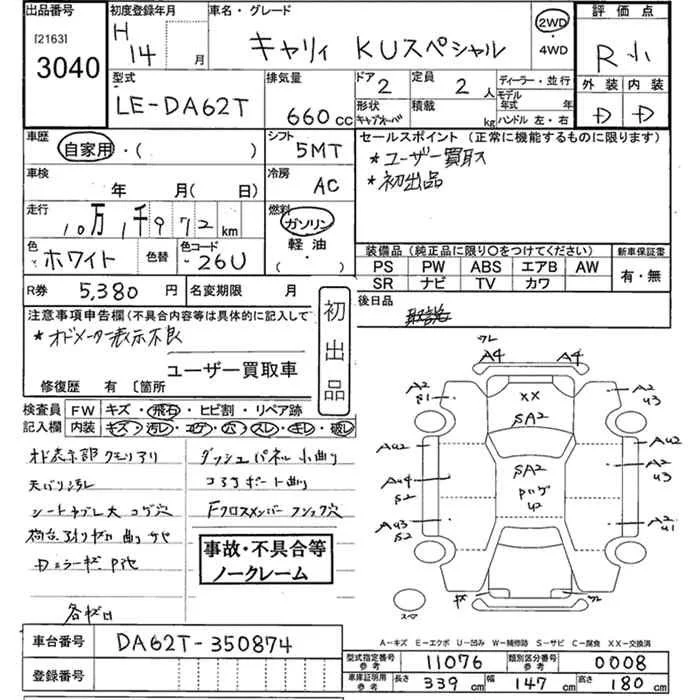 出品番号 初度登録年月 車名・グレード 評価点
[2163] H 14 月 キャリィ KUスペシャル 2WD・4WD R 小
3040
外装 内装
D D
型式 排気量 ドア 定員 ディーラー・並行
LE-DA62T 660cc 2 2人 モデル年式 年
形状 積載 kg ハンドル 左・右
車歴 シフト セールスポイント (正常に機能するものに限ります)
自家用・( ) 5MT *ユーザー買取
*初出品
車検 冷房
年 月( 日) AC
走行 燃料
10万1千972km ガソリン
軽油・( )
色 色替 色コード 装備品 (純正品に限り○をつけてください) 新車保証書
ホワイト 26U PS PW ABS エアB AW 有・無
SR ナビ TV カワ
R券 5,380円 名変期限 月 後日品
取説
注意事項申告欄(不具合内容等は具体的に記入して
*オドメーター表示不良
ユーザー買取車
初出品
修復歴 有 〔箇所
検査員記入欄 FW キズ・飛石・ヒビ割・リペア跡
内装 キズ・汚レ・コゲ・穴・スレ・キレ・破レ
オド表示部クモリアリ ダッシュパネル小曲り
天バリ汚レ コアサポート曲り
Fクロスメンバー
事故・不具合等
ノークレーム
A4 A4
A2 S1 XX A2 U3
SA2
AU2 SA2 AU2
AU4 S2 U2 A2 U3
AU3 S2 A2 U1
スペア
A-キズ E-エクボ U-凹み W-補修跡 S-サビ C-腐食 XX-交換済
車台番号 DA62T-350874
登録番号
型式指定番号 参考 11076 類別区分番号 参考 0008
車庫証明用 参考 長さ 339cm 幅 147cm 高さ 180cm